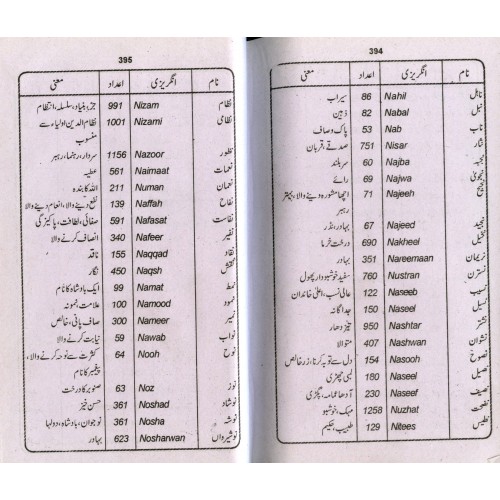 394
نام انگریزی اعداد معنی
ناہل Nahil 86 سیراب
نبل Nabal 82 ذہین
ناب Nab 53 پاک وصاف
نثار Nisar 751 صدقے، قربان
نجبہ Najba 60 سربلند
نجویٰ Najwa 69 رائے
نجیح Najeeh 71 اچھا مشورہ دینے والا، بہتر
رہبر
نجید Najeed 67 بہادر، نڈر
نخیل Nakheel 690 درخت خرما
نریمان Nareemaan 351 بہادر
نسترن Nustran 760 سفید خوشبودار پھول
نسیب Naseeb 122 عالی نسب، اعلیٰ خاندان
نسیل Naseel 150 جداگانہ
نشتر Nashtar 950 تیز دھار
نشوان Nashwan 407 متوالا
نصوح Nasooh 154 دل سے توبہ کرنا، زرخالص
نصیل Naseel 180 لمبی چھڑی
نصیف Naseef 230 آدھا عمامہ، پگڑی
نضہت Nuzhat 1258 مہک، خوشبو
نطیس Nitees 129 طبیب، حکیم
395
نام انگریزی اعداد معنی
نظام Nizam 991 جڑ، بنیاد، سلسلہ، انتظام
نظامی Nizami 1001 نظام الدین اولیاء سے
منسوب
نظور Nazoor 1156 سردار، رہنما، رہبر
نعمات Naimaat 561 عطیہ
نعمان Numan 211 اللہ کا بندہ
نفاح Naffah 139 نفع دینے والا، انعام دینے والا
نفاست Nafasat 591 صفائی، لطافت، پاکیزگی
نفیر Nafeer 340 انصاف کرنے والا
نقاد Naqqad 155 ناقد
نقش Naqsh 450 نگار
نمط Namat 99 ایک بادشاہ کا نام
نمود Namood 100 علامت، نمونہ
نمیر Nameer 300 صاف پانی، خالص
نواب Nawab 59 نیابت کرنے والا
نوح Nooh 64 کثرت سے نوحہ کرنے والا،
پیغمبر کا نام
نوز Noz 63 صنوبر کا درخت
نوشاد Noshad 361 حسن خیز
نوشہ Nosha 361 نوجوان، بادشاہ، دولہا
نوشیرواں Nosharwan 623 بہادر